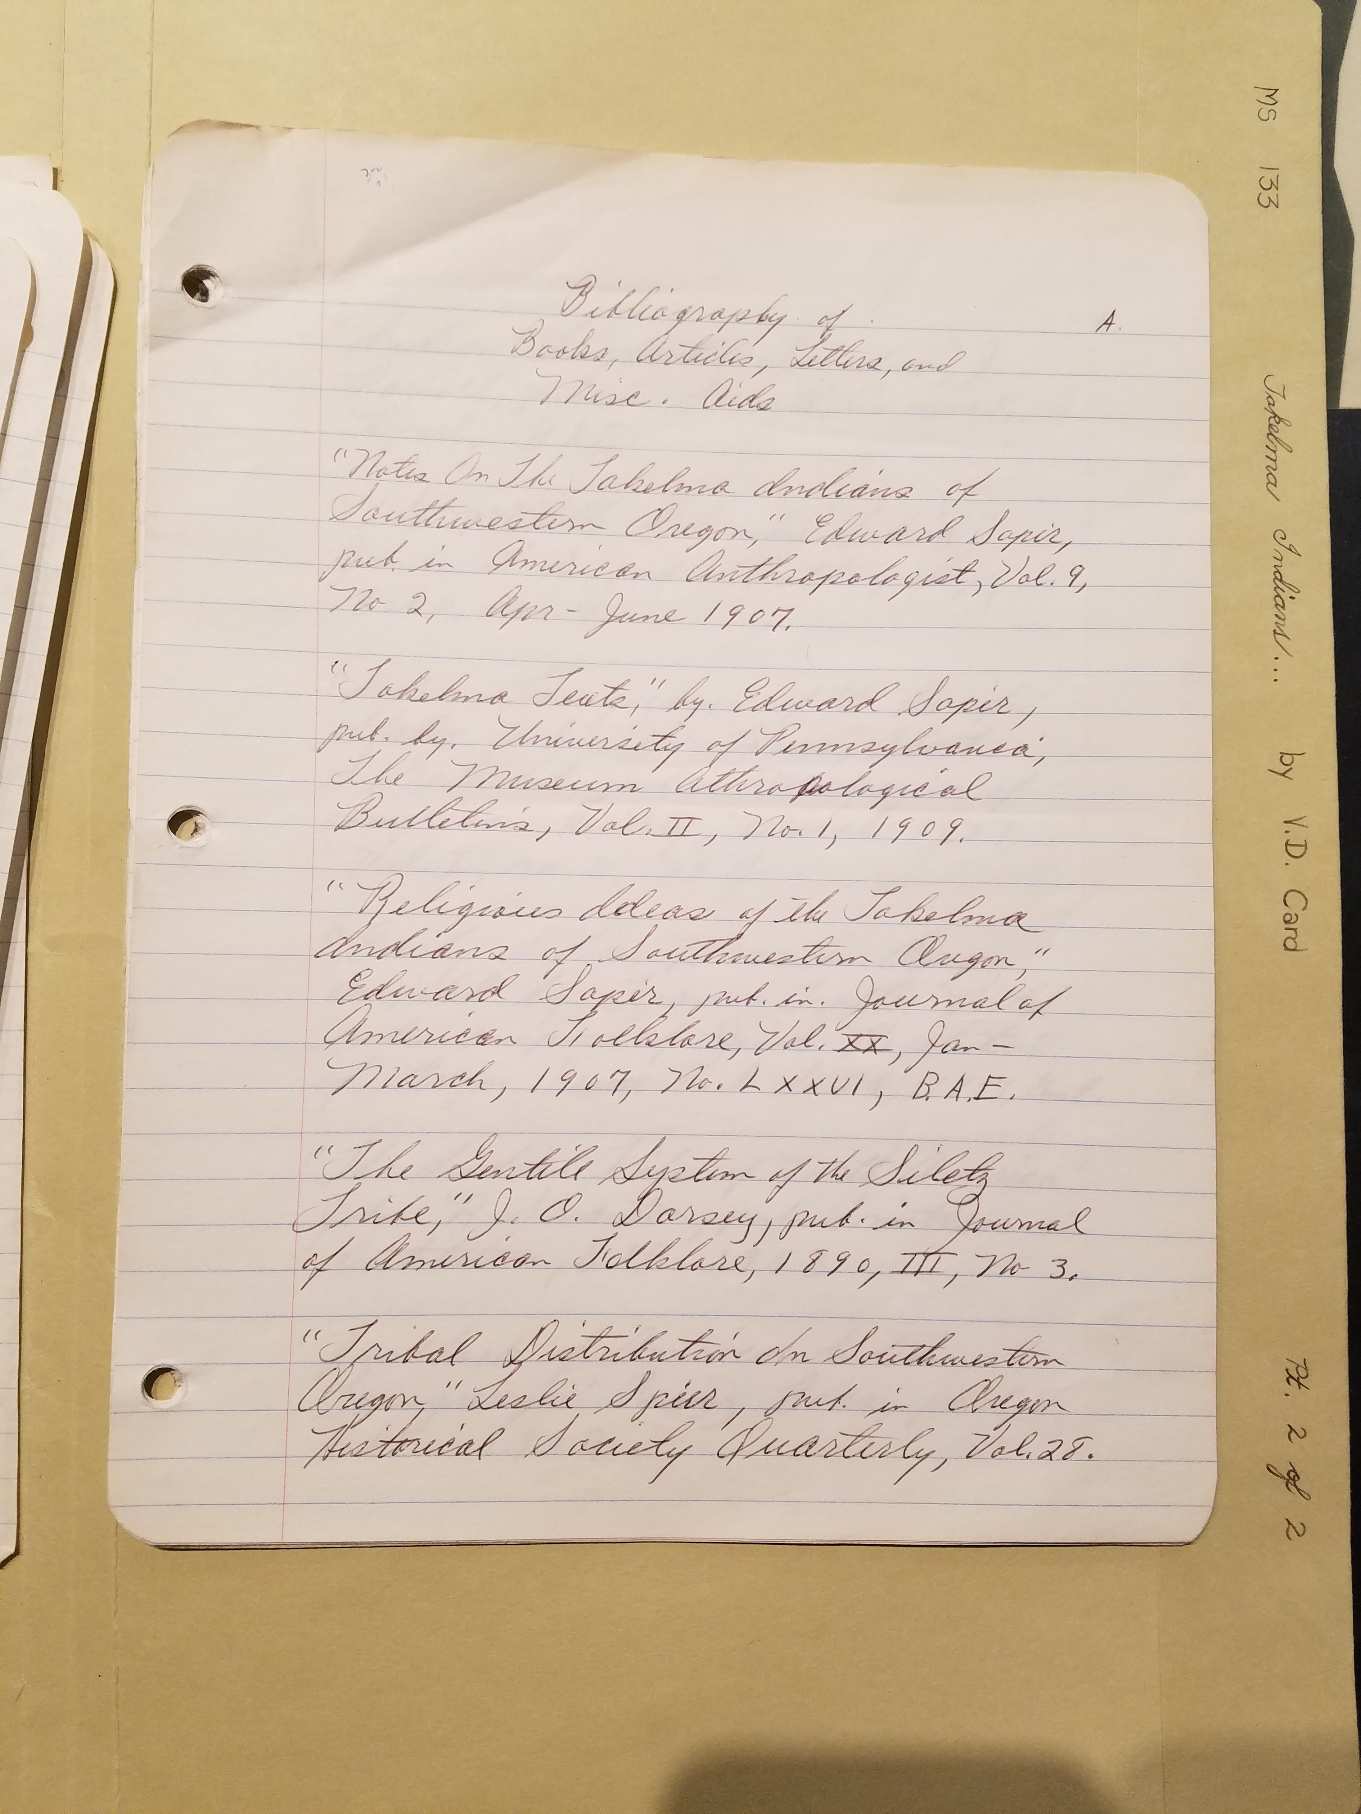 Bibliography of
A.
Books, Articles, Letters, and
Misc. Aids
"Notes On The Takelma Indians of
Southwestern Oregon," Edward Sapir,
pub. in American Anthropologist, Vol. 9,
No 2, Apr - June 1907.
"Takelma Texts," by. Edward Sapir,
pub. by. University of Pennsylvania,
The Museum Athropological
Bulletins, Vol. II, No. 1, 1909.
"Religious Ideas of the Takelma
Indians of Southwestern Oregon,"
Edward Sapir, pub. in. Journal of
American Folklore, Vol. XX, Jan -
March, 1907, No. LXXVI, B.A.E.
"The Gentile System of the Siletz
Tribe," J. O. Dorsey, pub. in Journal
of American Folklore, 1890, III, No 3.
"Tribal Distribution In Southwestern
Oregon," Leslie Spier, pub. in Oregon
Historical Society Quarterly, Vol. 28.
MS 133 Takelma Indians... by V.D. Card Pt. 2 of 2